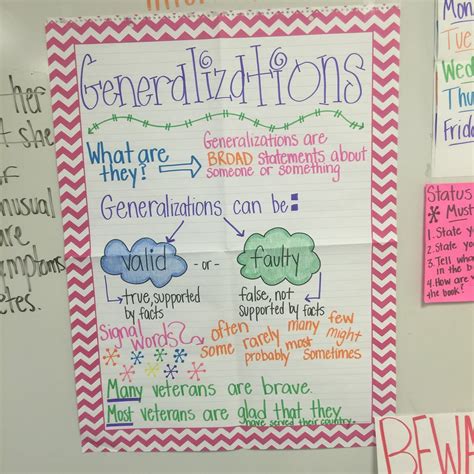 Generalizations
What are they?
Generalizations are
BROAD statements about
someone or something
Generalizations can be:
valid -or- faulty
true, supported
by facts
false, not
supported by facts
Signal
Words
often many few
some rarely most might
probably sometimes
Many veterans are brave.
Most veterans are glad that they
have served their country.
her
t she
of
are
Mon
Tue
Wed
Thu
Frida
Status
* Must
1. State y
2. State y
3. Tell wha
in the b
4. How are
the book?
BEWA